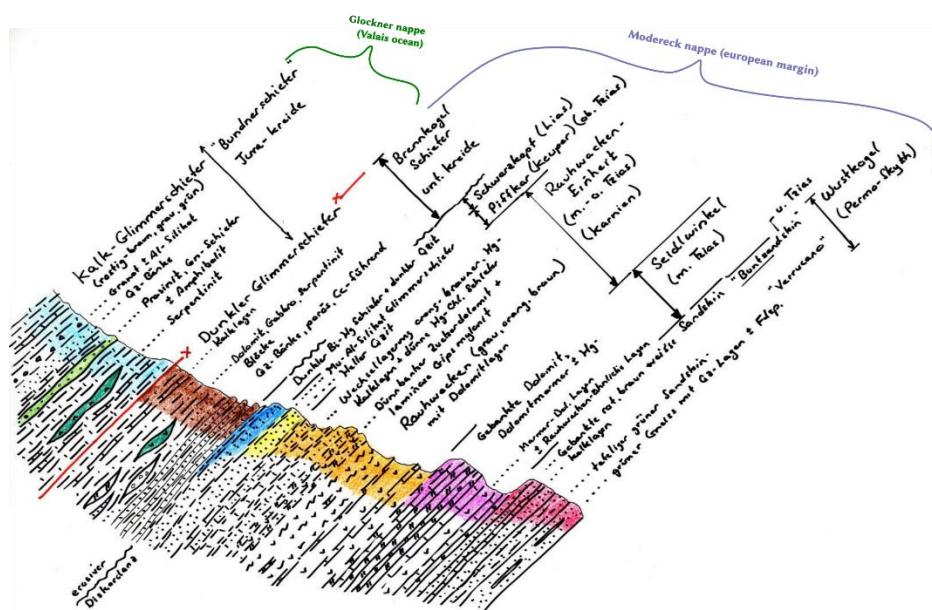 Glockner nappe
(Valais ocean)
Modereck nappe (european margin)
"Bundnerschiefer"
Jura-kreide
Kalk-Glimmerschiefer
(rostig-braun, grau, grün)
Granat ± Al-Silikat
Qz-Bänke
Prasinit, Gn-Schiefer
± Amphibolit
Serpentinit
Dunkler Glimmerschiefer
Kalklagen
Dolomit, Gabbro, Serpentinit
Blöcke
Qz-Bänke, porös, Cc-führend
Brennkogel
Schiefer
unt. kreide
Dunkler Bi-Hg Schiefer + dunkler Qzit
Mu, Al-Silikat Glimmerschiefer
Heller Qzit
Schwarzkopf (Lias)
Piffkar (Keuper) (ob. Trias)
Wechsellagerung orang-brauner, Hg-
Kalklagen + dünne Hg-Chl. Schiefer
Dünnbankiger Zuckerdolomit +
laminierte Gipsmylonit
Rauhwacken (grau, orang-braun)
mit Dolomitlagen
Rauhwacken-
Einheit
(m.-o. Trias)
(Karnian)
Gebankte Dolomit,
Dolomitmarmor ± Hg-
Marmor-Dol. Lagen
± Rauhwacken-ähnliche Lagen
Seidlwinkel
(m. Trias)
Gebankte rot braun
Kalklagen
Sandstein "Buntsandstein"
u. Trias
tafeliger grüner Sandstein-
gneis (Gneiss mit Qz-Lagen ± Fdsp.
"Verrucano"
Wustkogel
(Permo-Skyth)
erosiver
Diskordanz